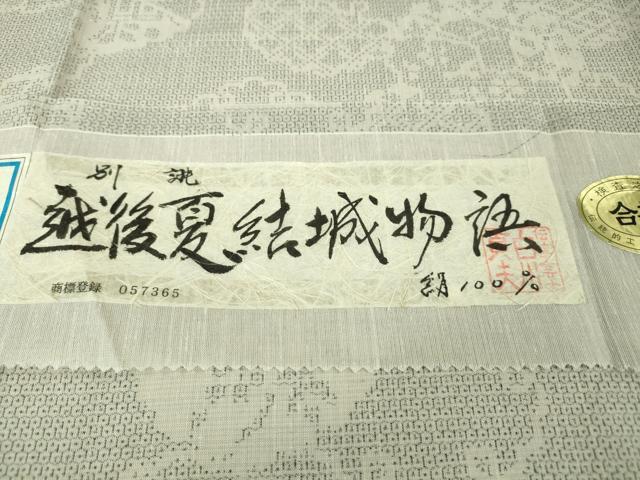 別誂
越後夏結城物語
商標登録 057365
絹100%
検査
合
伝統的工